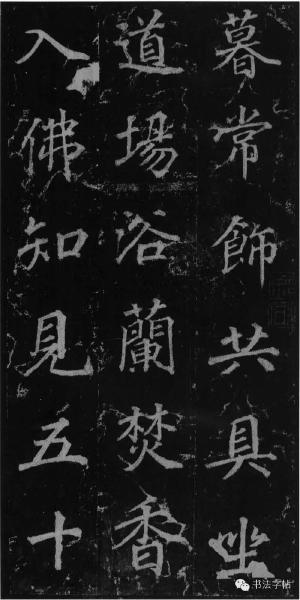 暮常飾共具坐
道場浴蘭焚香
入佛知見五十
书法字帖